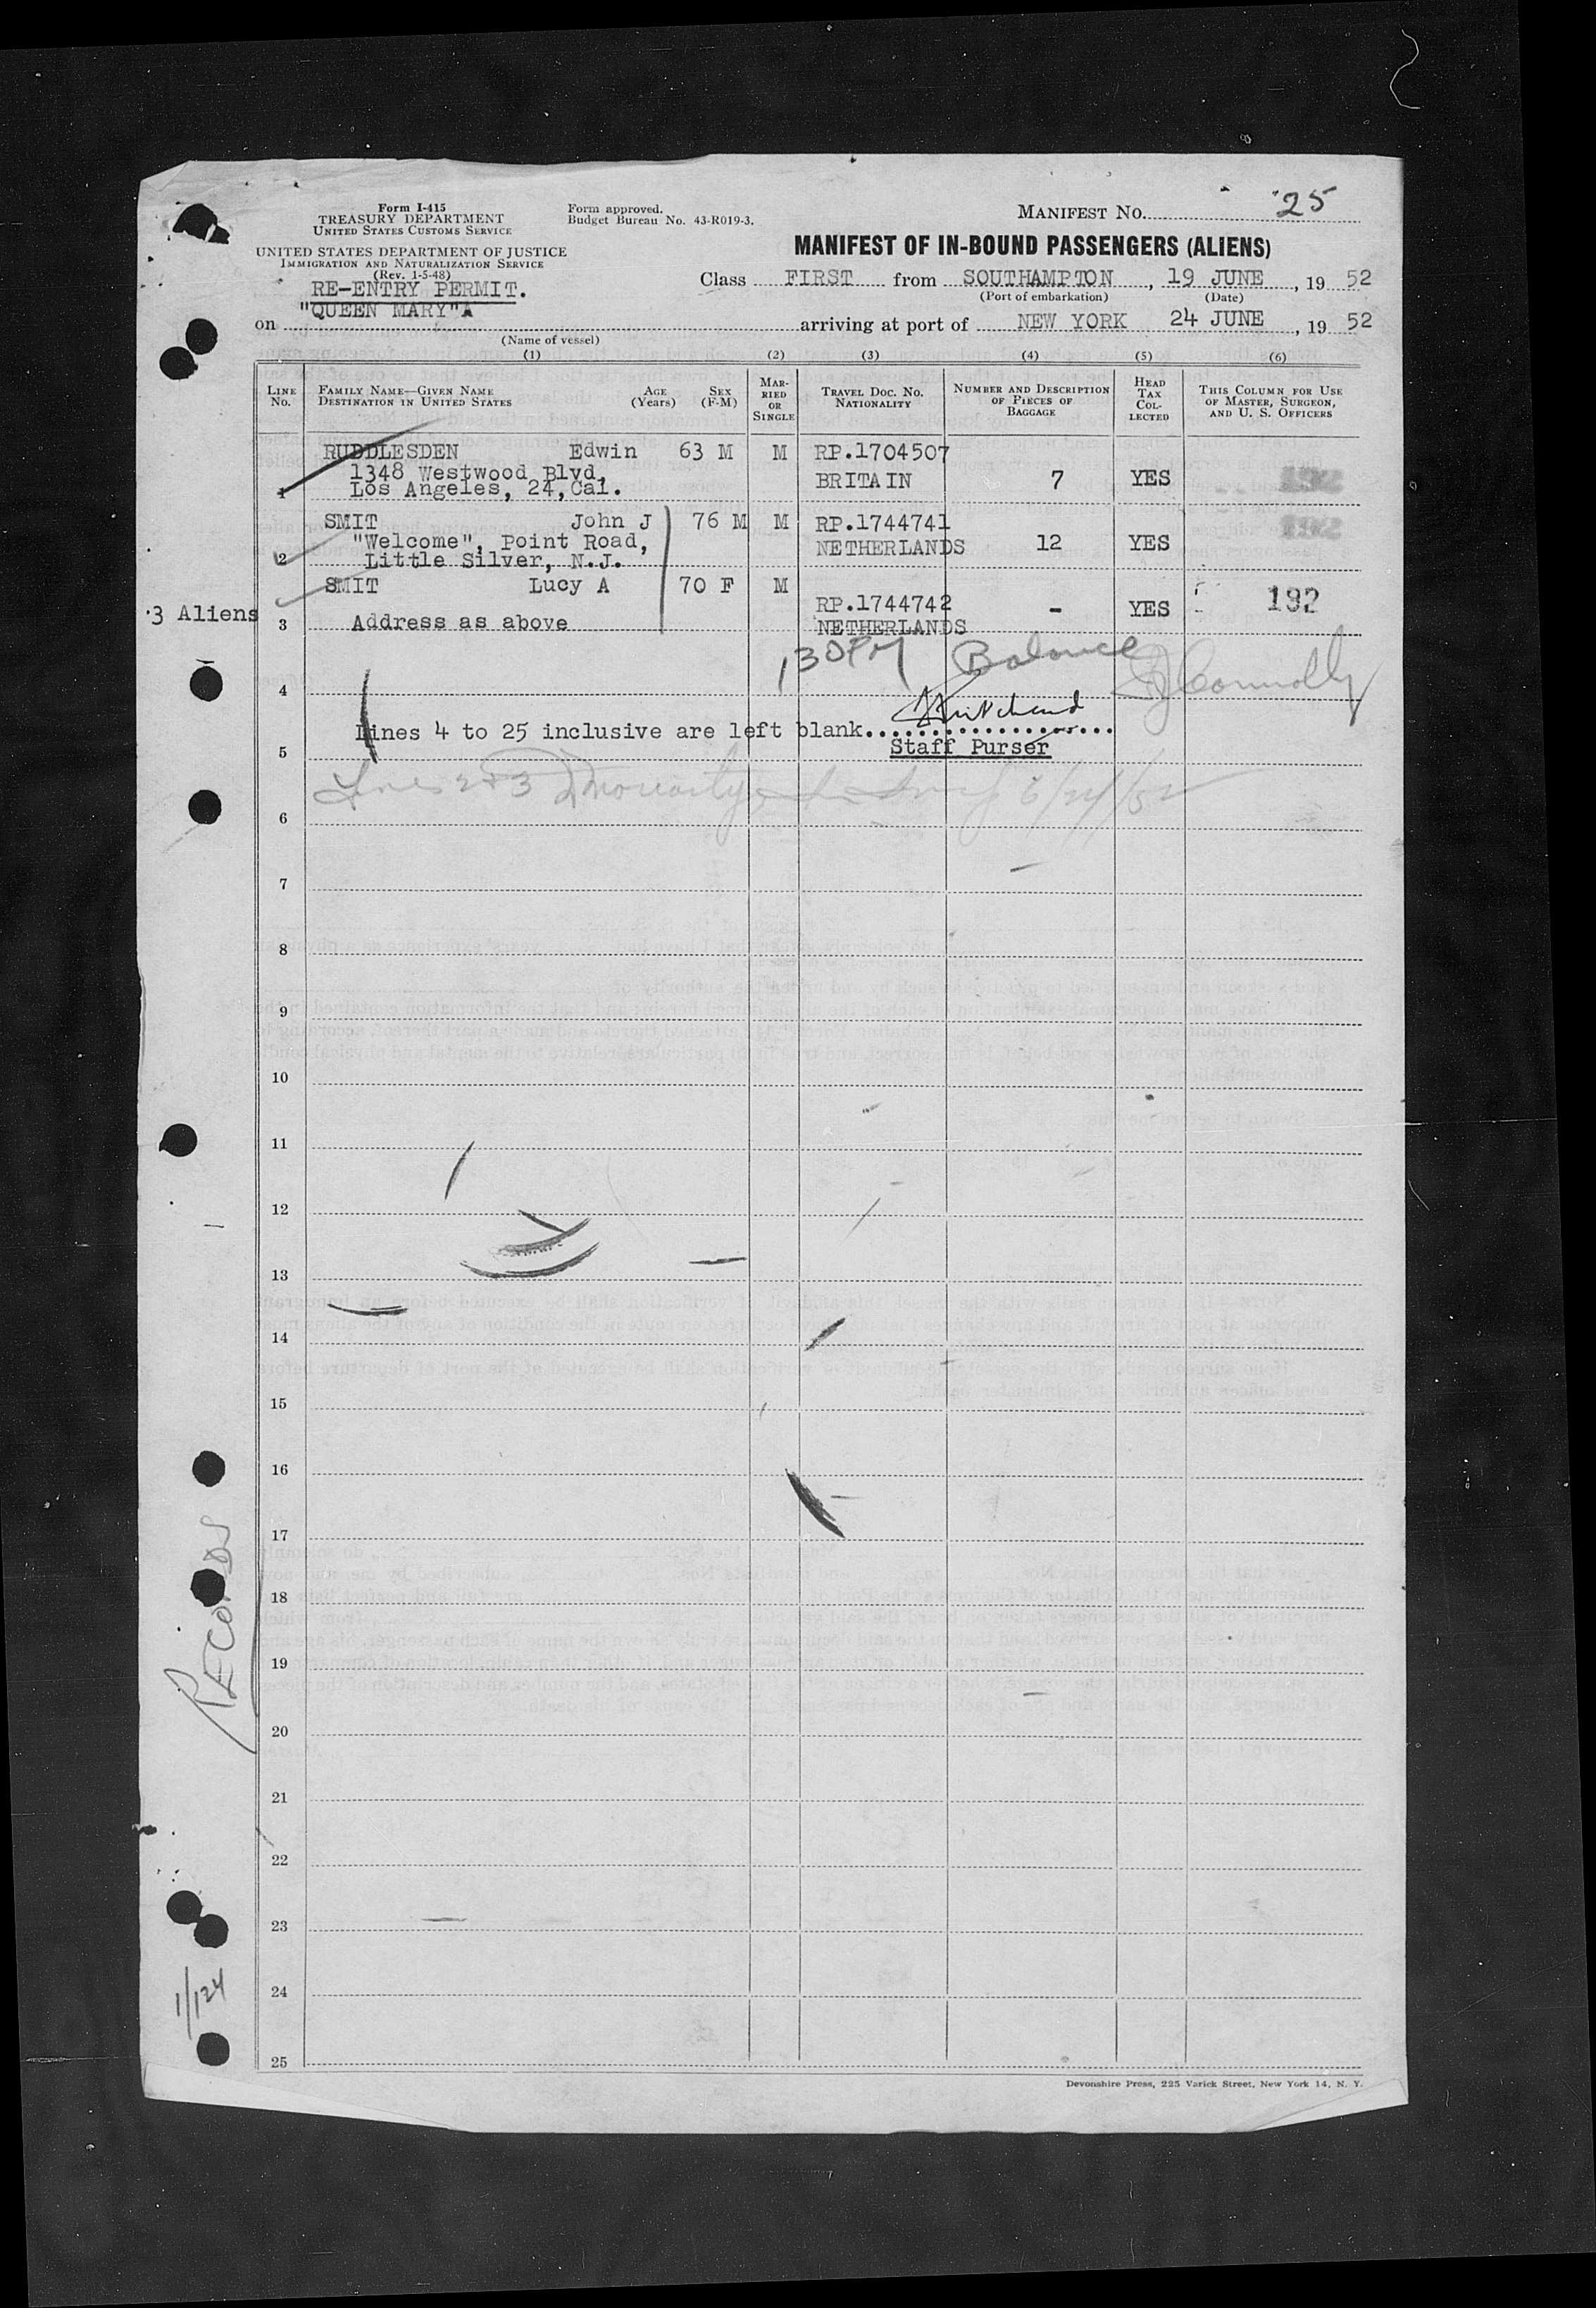 Form I-415
TREASURY DEPARTMENT
UNITED STATES CUSTOMS SERVICE
Form approved.
Budget Bureau No. 43-R019-3.
MANIFEST NO. 25
UNITED STATES DEPARTMENT OF JUSTICE
IMMIGRATION AND NATURALIZATION SERVICE
(Rev. 1-5-48)
MANIFEST OF IN-BOUND PASSENGERS (ALIENS)
RE-ENTRY PERMIT.
Class FIRST from SOUTHAMPTON, 19 JUNE, 19 52
(Port of embarkation) (Date)
on "QUEEN MARY" arriving at port of NEW YORK 24 JUNE, 19 52
(Name of vessel)
(1) (2) (3) (4) (5) (6)
LINE NO.
FAMILY NAME—GIVEN NAME
DESTINATION IN UNITED STATES
AGE (Years)
SEX (F-M)
MARRIED OR SINGLE
TRAVEL DOC. NO.
NATIONALITY
NUMBER AND DESCRIPTION OF PIECES OF BAGGAGE
HEAD TAX COLLECTED
THIS COLUMN FOR USE OF MASTER, SURGEON, AND U. S. OFFICERS
RUDDLESDEN Edwin 63 M M RP.1704507
1348 Westwood Blvd, BRITAIN 7 YES 192
1 Los Angeles, 24, Cal.
SMIT John J 76 M M RP.1744741 192
"Welcome", Point Road, NETHERLANDS 12 YES
2 Little Silver, N.J.
SMIT Lucy A 70 F M
3 Aliens RP.1744742 - YES 192
3 Address as above NETHERLANDS
130PM Balance Connolly
4
Lines 4 to 25 inclusive are left blank
Staff Purser
5
Lines 2 & 3 Moriarty 6/24/52
6
7
8
9
10
11
12
13
14
15
16
17
18
19
RECORDS
20
21
22
23
24
1/124
25
Devonshire Press, 225 Varick Street, New York 14, N. Y.